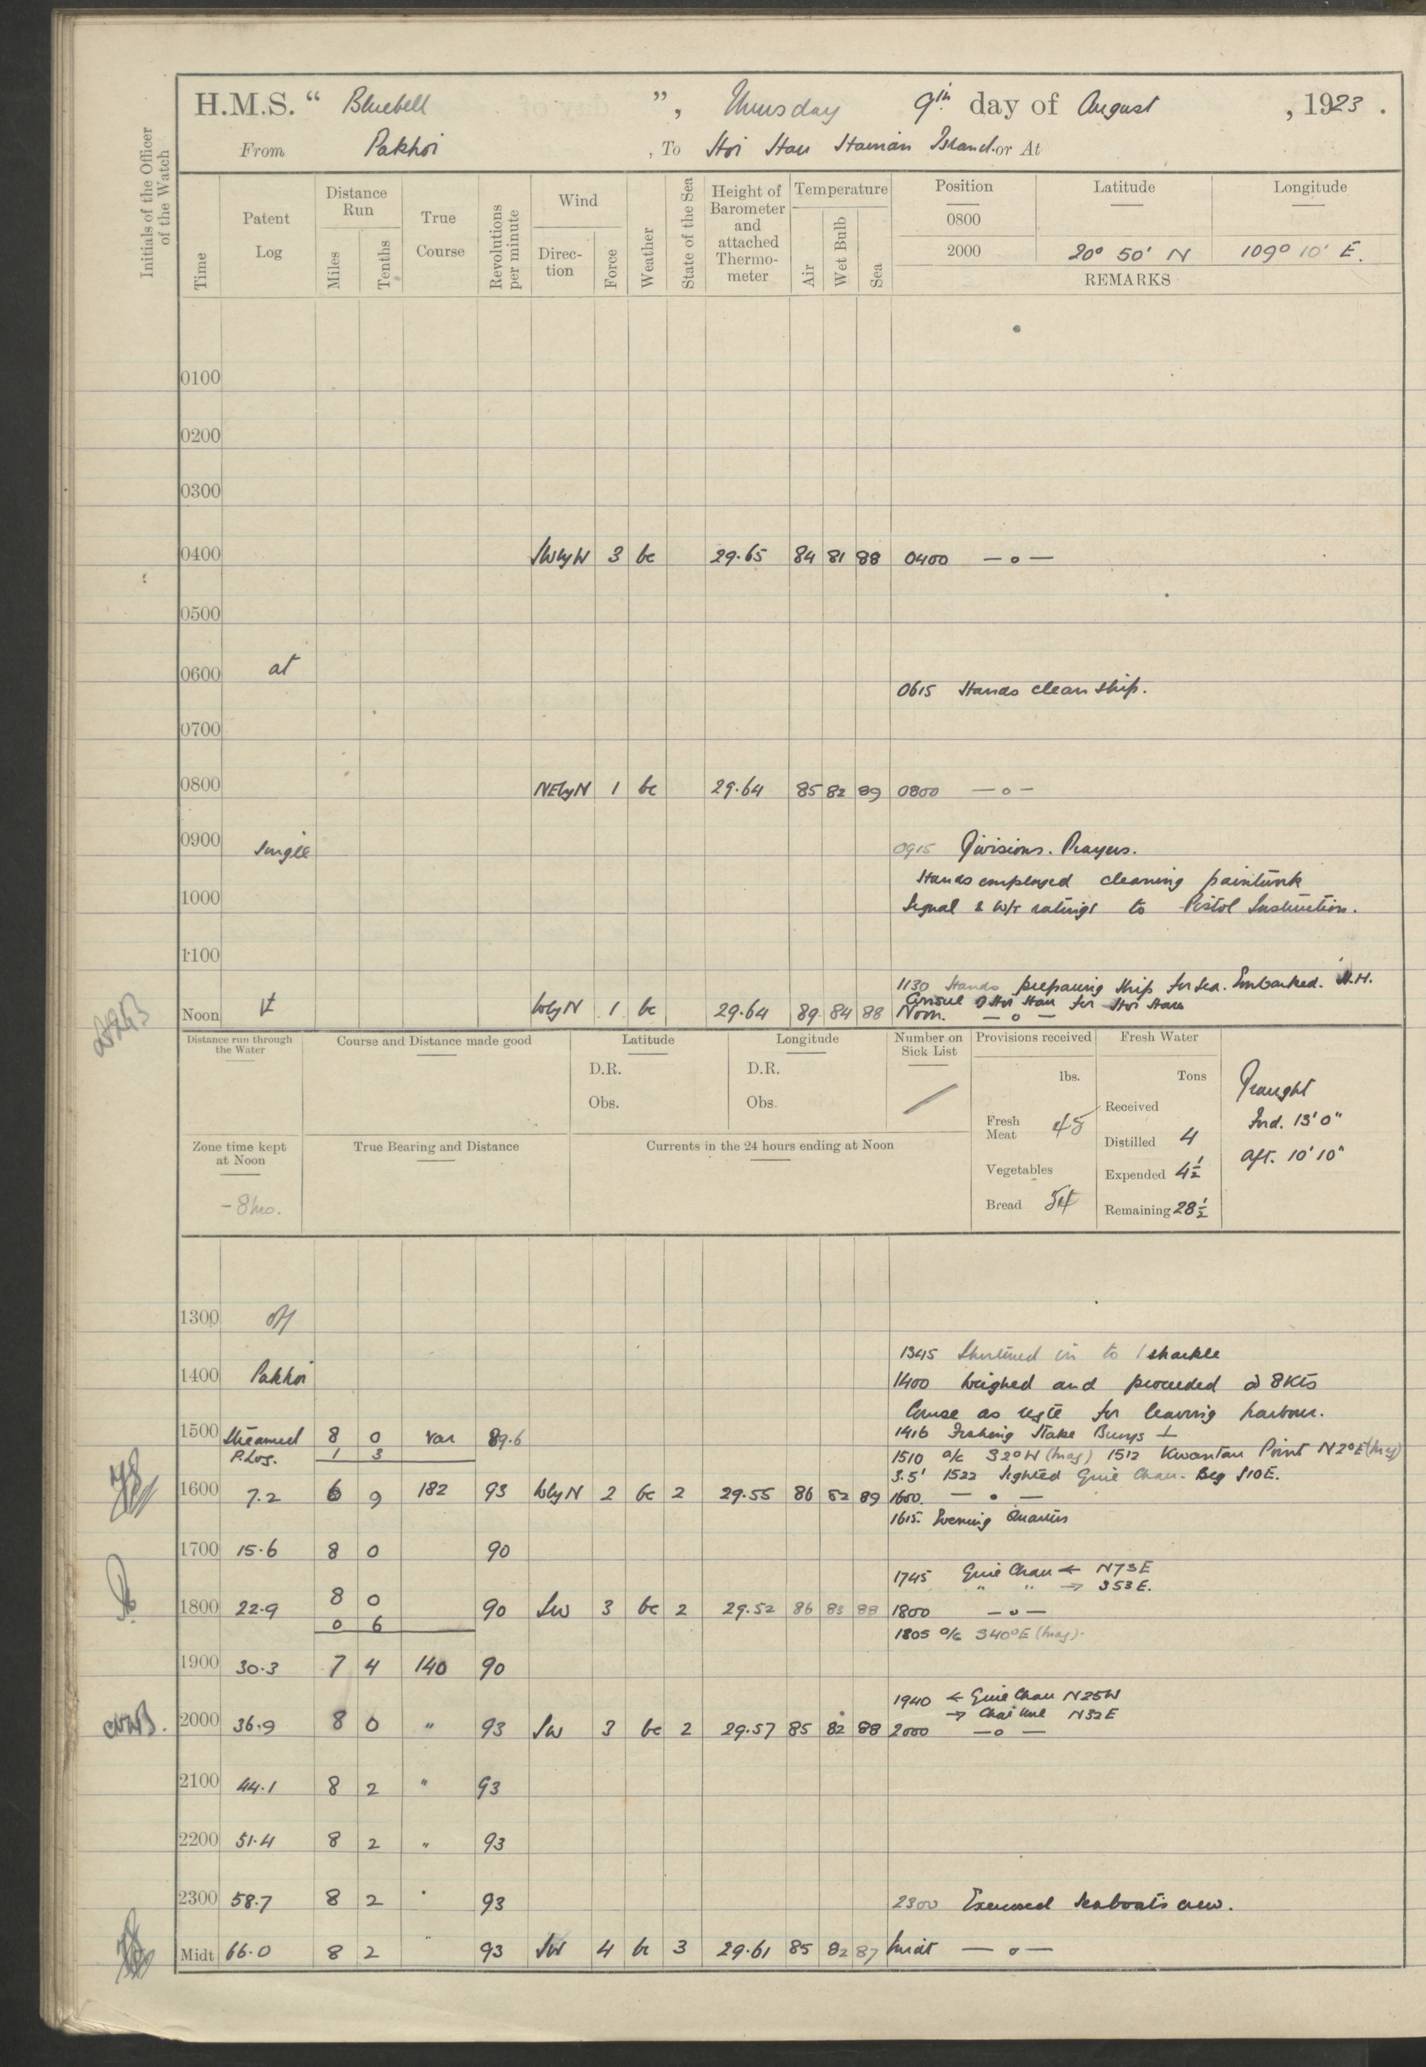 H.M.S. " Bluebell ", Thursday 9th day of August, 1923.
From Pakhoi, To Hoi Hau Hainan Island. or At
Initials of the Officer of the Watch
Time
Patent Log
Distance Run
Miles
Tenths
True Course
Revolutions per minute
Wind
Direction
Force
Weather
State of the Sea
Height of Barometer and attached Thermometer
Temperature
Air
Wet Bulb
Sea
Position Latitude Longitude
0800
2000 20° 50' N 109° 10' E.
REMARKS
0100
0200
0300
0400 SWbyW 3 bc 29.65 84 81 88 0400 — o —
0500
0600 at
0615 Hands clean ship.
0700
0800 NEbyN 1 bc 29.64 85 82 89 0800 — o —
0900 single 0915 Divisions. Prayers.
Hands employed cleaning paintwork
1000 Signal & W/T ratings to Pistol Instruction.
1100
1130 Hands preparing ship for sea. Embarked. H.M.
Consul Hoi Hau for Hoi Hau
Noon WbyN 1 bc 29.64 89 84 88 Noon. — o —
Distance run through the Water
Course and Distance made good
Latitude
D.R.
Obs.
Longitude
D.R.
Obs.
Number on Sick List
/
Provisions received
lbs.
Fresh Meat 45
Vegetables
Bread 54
Fresh Water
Tons
Received
Distilled 4
Expended 4½
Remaining 28½
Draught
Ford. 13' 0"
Aft. 10' 10"
Zone time kept at Noon
- 8 hrs.
True Bearing and Distance
Currents in the 24 hours ending at Noon
1300 off
1345 Shortened in to 1 shackle
1400 Pakhoi 1400 Weighed and proceeded @ 8 Kts
Course as reqte for leaving harbour.
1500 Steamed 8 0 var 89.6 1416 Fishing Stake Buoys ⊥
P. Log. 1 3 1510 a/c S 2° W (mag) 1512 Kwantau Point N 2° E (mag)
3.5' 1522 Sighted Guie Chau. Beg S 10 E.
1600 7.2 6 9 182 93 WbyN 2 bc 2 29.55 86 82 89 1600. — o —
1615. Evening Quarters
1700 15.6 8 0 90
1745 Guie Chau ← N 73 E
" " → S 53 E.
1800 22.9 8 0 90 SW 3 bc 2 29.52 86 83 88 1800 — o —
0 6 1805 a/c S 40° E (mag).
1900 30.3 7 4 140 90
1940 ← Guie Chau N 25 W
→ Chai N 32 E
2000 36.9 8 0 " 93 SW 3 bc 2 29.57 85 82 88 2000 — o —
2100 44.1 8 2 " 93
2200 51.4 8 2 " 93
2300 58.7 8 2 " 93 2300 Exercised Seaboats crew.
Midt 66.0 8 2 93 SW 4 bc 3 29.61 85 82 87 Midt — o —